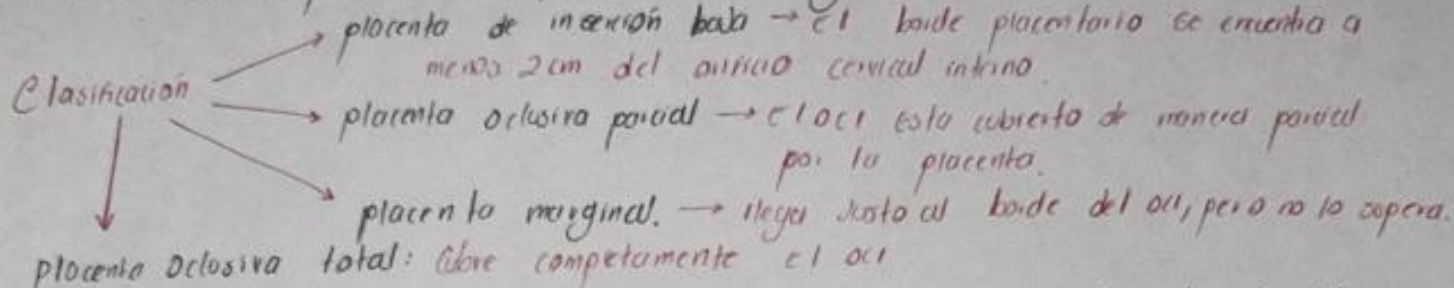 placenta de inserción baja → El borde placentario se encuentra a
menos 2 cm del orificio cervical interno.
Clasificación
placenta oclusiva parcial → El OCI esta cubierto de manera parcial
por la placenta.
placenta marginal. → llega Justo al borde del OCI, pero no lo supera.
placenta Oclusiva total: Cubre competamente el OCI